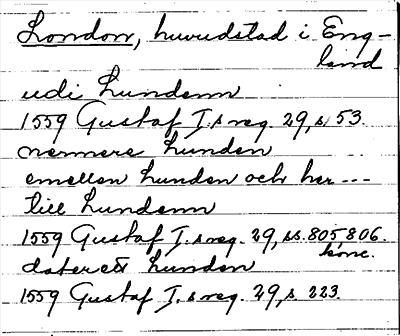 London, huvudstad i Eng-
land
udi Lundenn
1559 Gustaf I.s reg. 29, s. 53.
nermere Lunden
emellan Lunden och her ---
till Lundenn
1559 Gustaf I.s reg. 29, ss. 805, 806.
konc.
daterett Lunden
1559 Gustaf I.s reg. 29, s. 223.